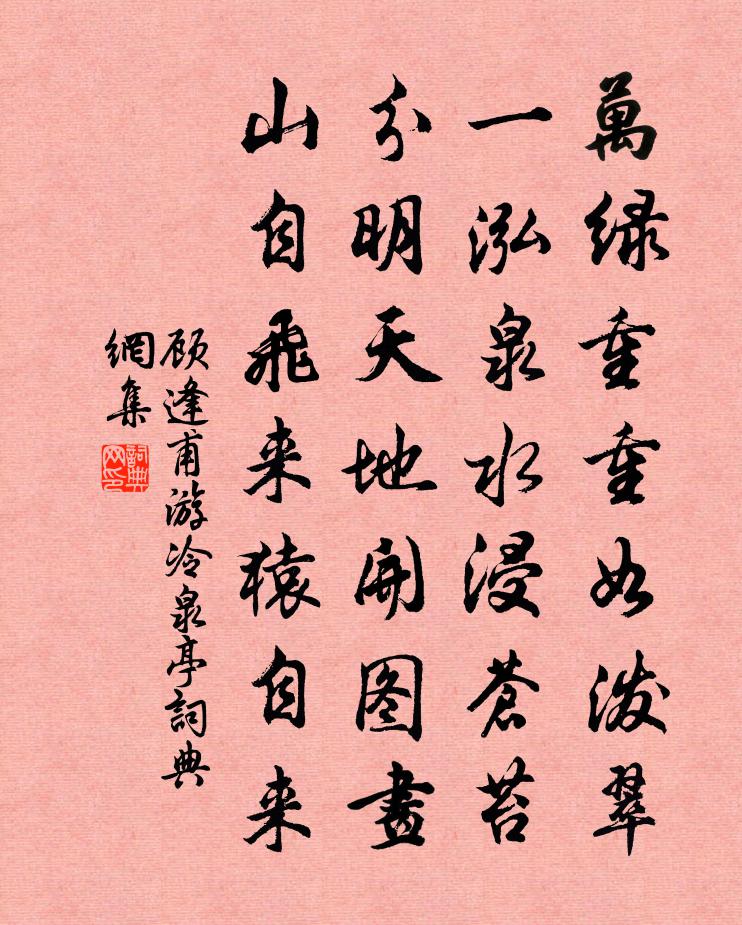 萬绿重重如泼翠
一泓泉水浸蒼苔
分明天地開图畫
山自飛来猿自来
顾逢甫游冷泉亭詞典
網集
詞典
网印